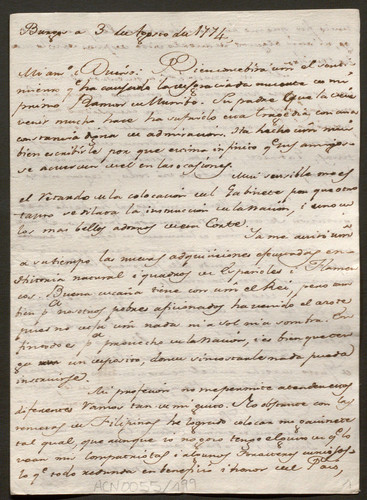 Burgos a 3 de Agosto de 1774,
Mi am.º i Dueño: Bien concebirá vm el senti-
miento q̃ ha causado la desgraciada muerte de mi
primo Ramon de Murito. Su padre q̃ la veia
venir mucho hace ha sufrido esta tragedia con una
constancia digna de admiracion. Ha hecho vm mui
bien escribirle por que estima infinito q̃ sus amigos
se acuerden de el en las ocasiones.
Mui sensible me es
el retardo de la colocacion del Gabinete por que otro
tanto se dilata la instruccion de la Nacion, i uno de
los mas bellos adornos de esa Corte.
Ya me avisará vm
a su tiempo las nuevas adquisiciones efectuadas en
Historia natural i quadros de Españoles i Flamen-
cos. Buena vecaia tiene con el Rei, pero
tambien p.ª nosotros pobres aficionados, haviendo el
pues no verá vm nada ni a sol ni a sombra. En
fin todo es p.ª provecho de la Nacion, i es bien que ten-
ga un deposito, donde
instruirse.
Mi profesion no me permite atender a dos
diferentes ramos tan de mi gusto. No obstante con las
remesas de Filipinas he logrado colocar mi gavinete
tal qual, que aunque yo no gozo tengo el gusto de q̃ lo
vean mis compatriotas i algunos Estrangeros curiosos
lo q̃ todo redunda en beneficio i honor del Pais,
ACN0055/499